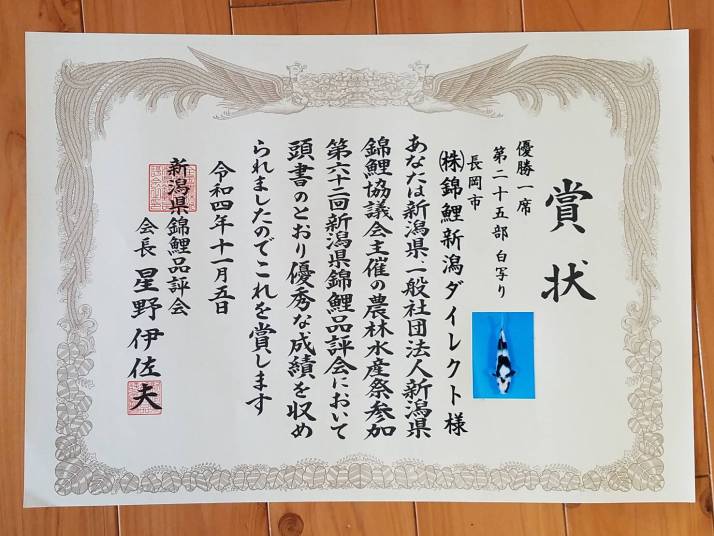 賞状
優勝一席
第二十五部 白写り
長岡市
㈱錦鯉新潟ダイレクト様
あなたは新潟県、一般社団法人新潟県
錦鯉協議会主催の農林水産祭参加
第六十二回新潟県錦鯉品評会において
頭書のとおり優秀な成績を収め
られましたのでこれを賞します
令和四年十一月五日
新潟県錦鯉品評会
会長 星野伊佐夫